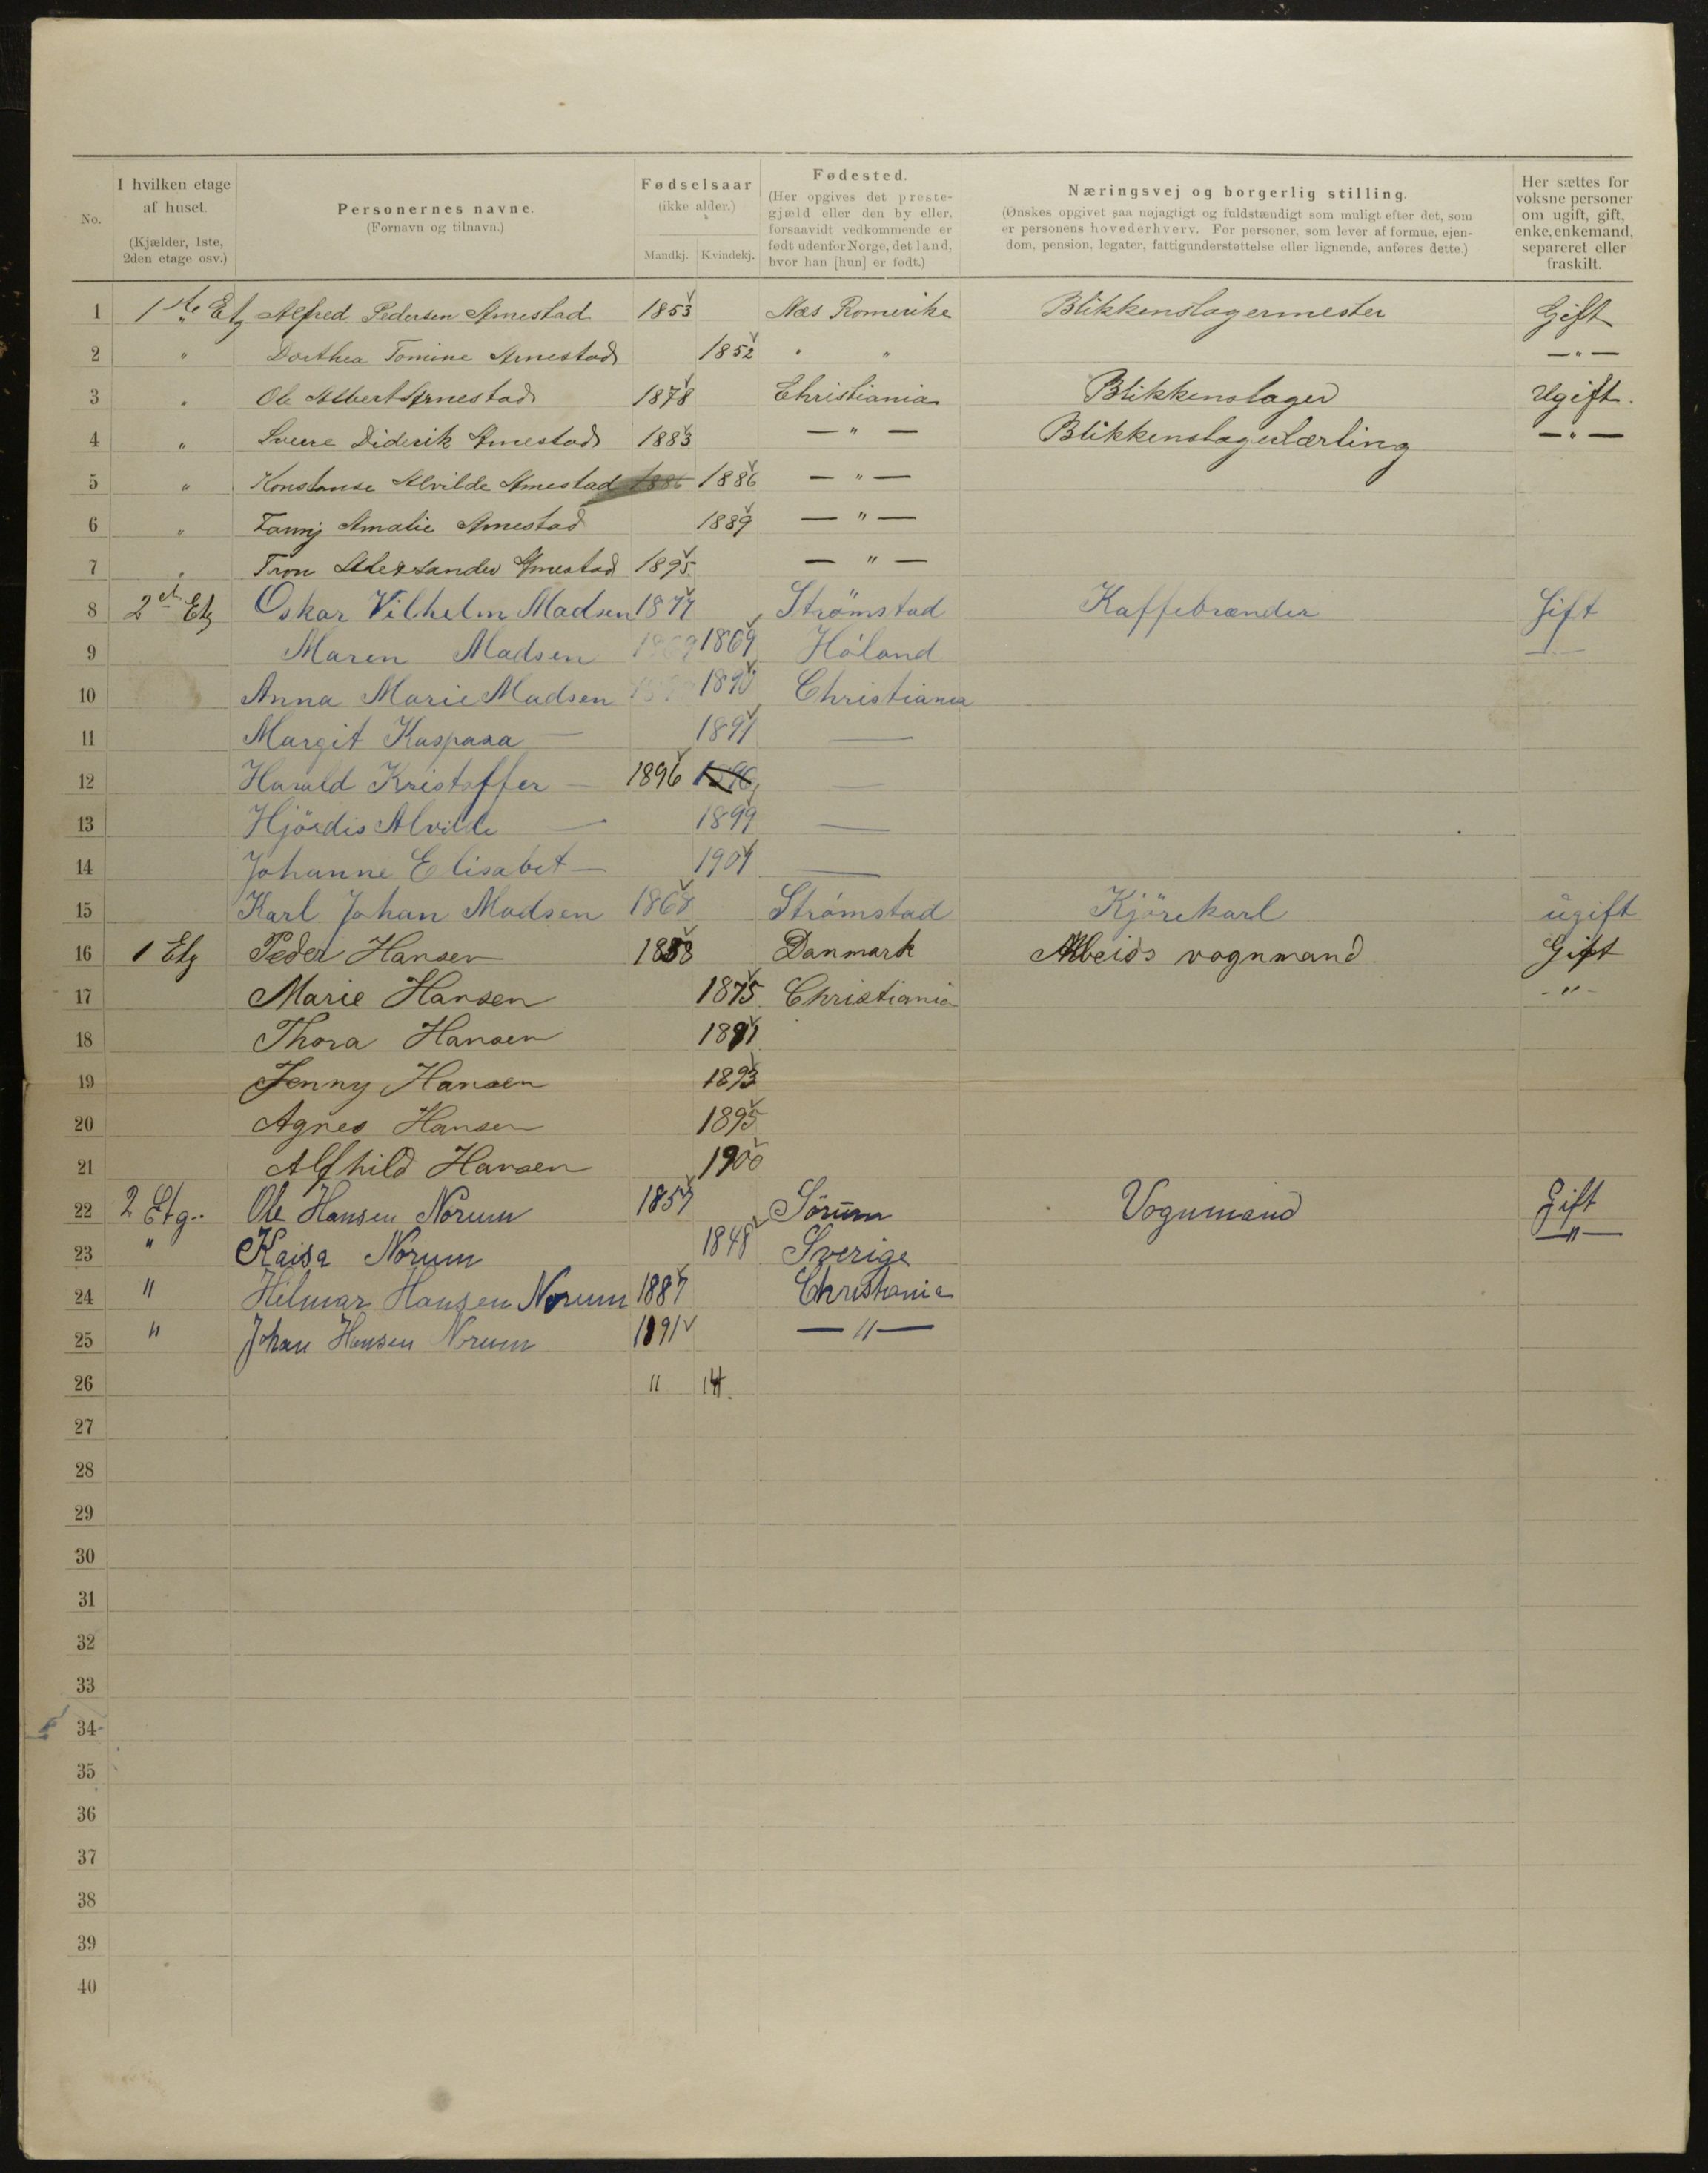 No.
I hvilken etage af huset. (Kjælder, 1ste, 2den etage osv.)
Personernes navne. (Fornavn og tilnavn.)
Fødselsaar (ikke alder.) Mandkj. Kvindekj.
Fødested. (Her opgives det prestegjæld eller den by eller, forsaavidt vedkommende er født udenfor Norge, det land, hvor han [hun] er født.)
Næringsvej og borgerlig stilling. (Ønskes opgivet saa nøjagtigt og fuldstændigt som muligt efter det, som er personens hovederhverv. For personer, som lever af formue, ejendom, pension, legater, fattigunderstøttelse eller lignende, anføres dette.)
Her sættes for voksne personer om ugift, gift, enke, enkemand, separeret eller fraskilt.
1 1ste Etg Alfred Pedersen Arnestad 1853 Næs Romerike Blikkenslagermester Gift
2 " Dorthea Tomine Arnestad 1852 " " — " —
3 " Ole Albert Arnestad 1878 Christiania Blikkenslager Ugift.
4 " Sverre Diderik Arnestad 1883 — " — Blikkenslagerlærling — " —
5 " Konstanse Alvilde Arnestad 1886 1886 — " —
6 " Fanny Amalie Arnestad 1889 — " —
7 " Tron Alexsander Arnestad 1895. — " —
8 2et Etg Oskar Vilhelm Madsen 1877 Strömstad Kaffebrænder Gift
9 Maren Madsen 1869 1869 Höland —
10 Anna Marie Madsen 1890 Christiania
11 Margit Kaspara — 1891 —
12 Harald Kristoffer — 1896 1896 —
13 Hjördis Alvilde — 1899 —
14 Johanne Elisabet — 1901 —
15 Karl Johan Madsen 1868 Strömstad Kjörekarl ugift
16 1 Etg Peder Hansen 1858 Danmark Arbeids vognmand Gift
17 Marie Hansen 1875 Christiania - " -
18 Thora Hansen 1891
19 Jenny Hansen 1893
20 Agnes Hansen 1895
21 Alfhild Hansen 1900
22 2 Etg.. Ole Hansen Norum 1857 Sörum Vognmand Gift
23 " Kaisa Norum 1848 Sverige — " —
24 " Hilmar Hansen Norum 1887 Christiania
25 " Johan Hansen Norum 1891 — " —
26 11 14.
27
28
29
30
31
32
33
34
35
36
37
38
39
40